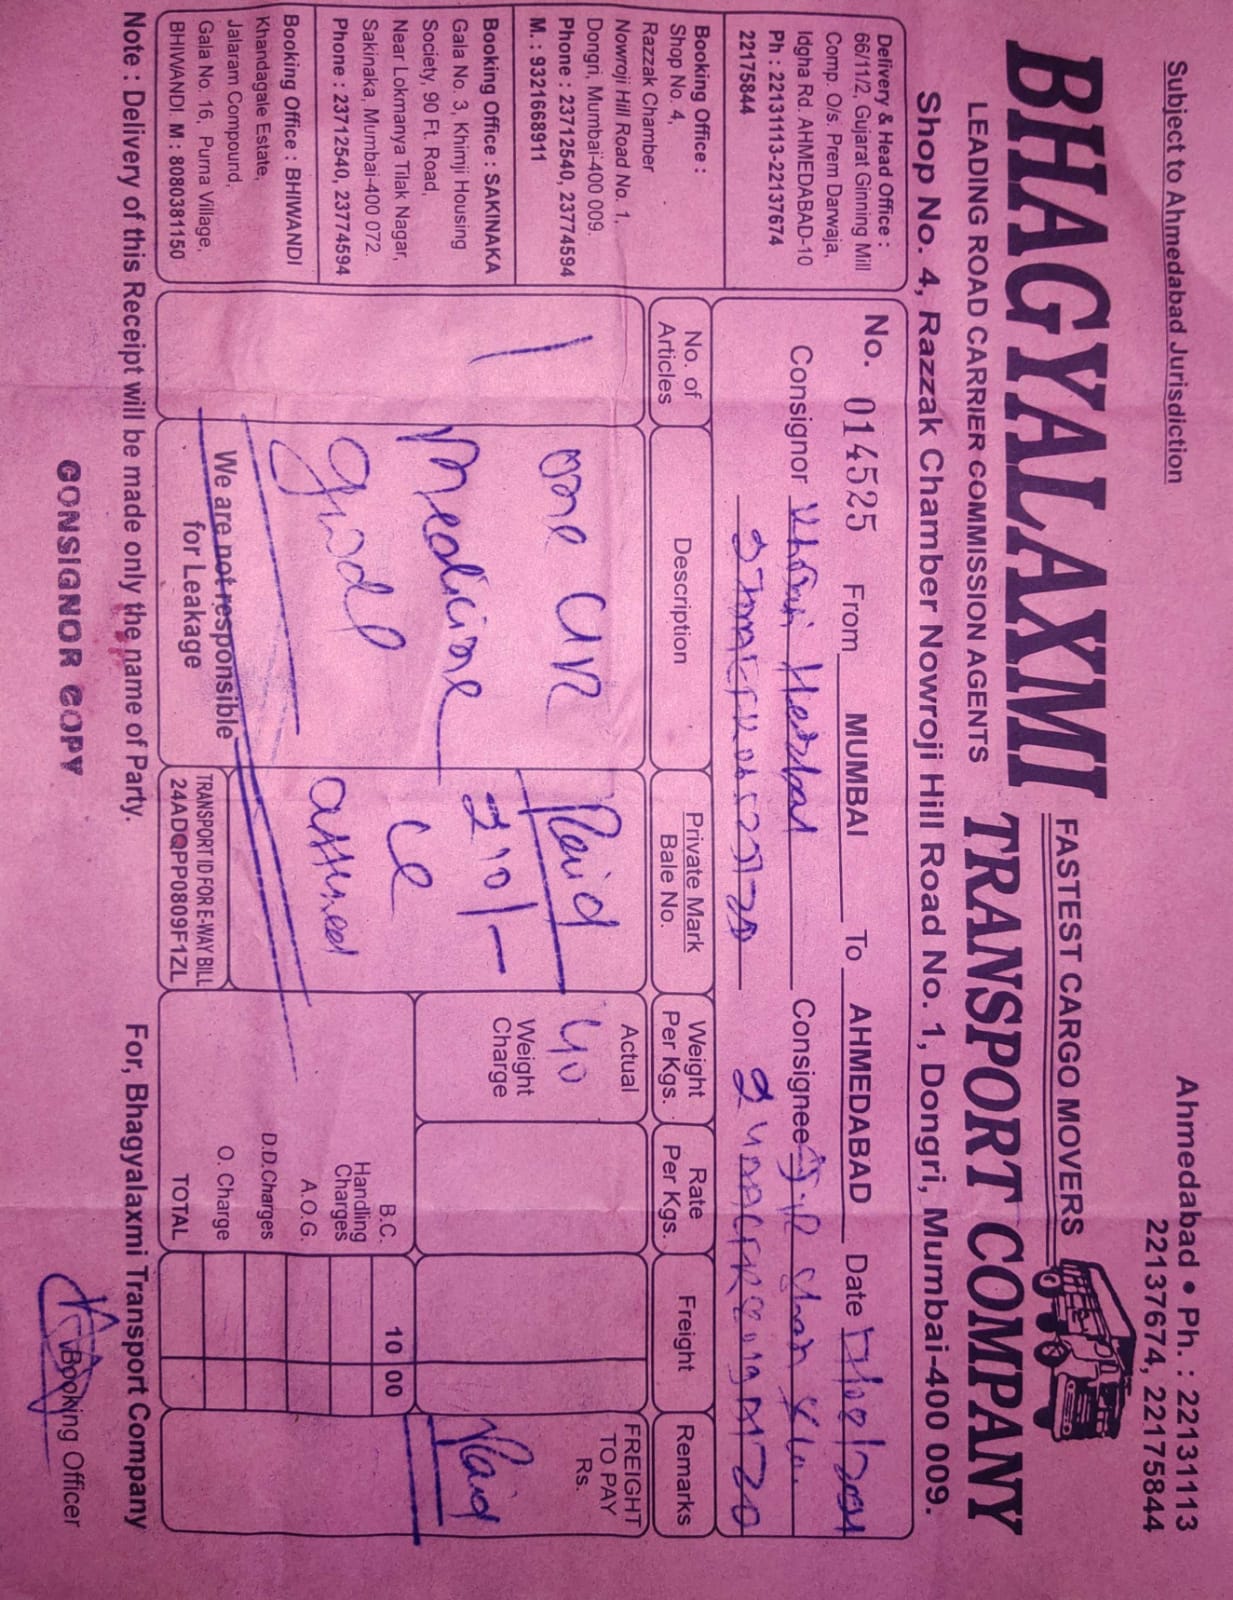 Subject to Ahmedabad Jurisdiction
Ahmedabad • Ph. : 22131113
22137674, 22175844
FASTEST CARGO MOVERS
BHAGYALAXMI TRANSPORT COMPANY
LEADING ROAD CARRIER COMMISSION AGENTS
Shop No. 4, Razzak Chamber Nowroji Hill Road No. 1, Dongri, Mumbai-400 009.
Delivery & Head Office :
66/11/2, Gujarat Ginning Mill
Comp. O/s. Prem Darwaja,
Idgha Rd. AHMEDABAD-10
Ph : 22131113-22137674
22175844
Booking Office :
Shop No. 4,
Razzak Chamber
Nowroji Hill Road No. 1,
Dongri, Mumbai-400 009.
Phone : 23712540, 23774594
M. : 9321668911
Booking Office : SAKINAKA
Gala No. 3, Khimji Housing
Society, 90 Ft. Road,
Near Lokmanya Tilak Nagar,
Sakinaka, Mumbai-400 072.
Phone : 23712540, 23774594
Booking Office : BHIWANDI
Khandagale Estate,
Jalaram Compound,
Gala No. 16, Purna Village,
BHIWANDI. M : 8080381150
No. 014525 From MUMBAI To AHMEDABAD Date
Consignor Consignee
No. of Articles
Description
Private Mark
Bale No.
Weight Per Kgs.
Rate Per Kgs.
Freight
Remarks
1
one
Medicine
Paid
210/-
Actual
40
Weight Charge
FREIGHT TO PAY Rs.
Paid
B.C. 10 00
Handling Charges
A.O.G.
D.D.Charges
O. Charge
TOTAL
We are not responsible
for Leakage
TRANSPORT ID FOR E-WAY BILL
24ADQPP0809F1ZL
Note : Delivery of this Receipt will be made only the name of Party.
For, Bhagyalaxmi Transport Company
CONSIGNOR COPY
Booking Officer